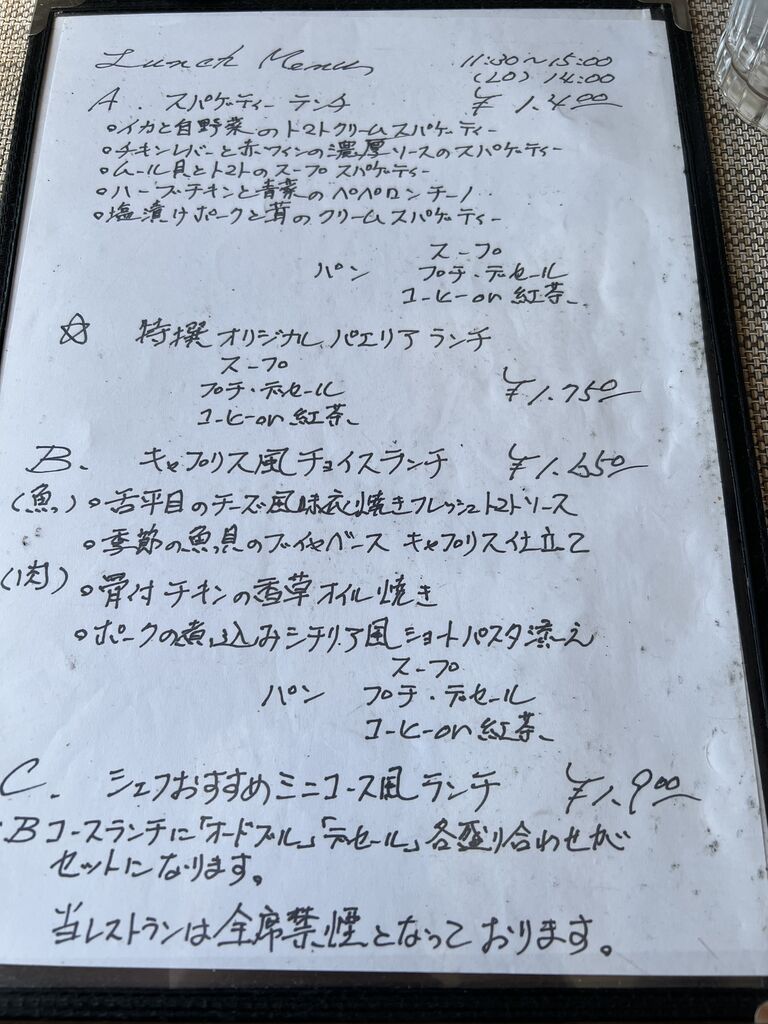 Lunch Menu
11:30〜15:00
(LO) 14:00
A. スパゲティー ランチ ¥1.400
○イカと自野菜のトマトクリームスパゲティー
○チキンレバーと赤ワインの濃厚ソースのスパゲティー
○ムール貝とトマトのスープ スパゲティー
○ハーブチキンと青菜のペペロンチーノ
○塩漬けポークと茸のクリームスパゲティー
スープ
パン プチ・デセール
コーヒーor紅茶
☆ 特撰オリジナルパエリアランチ
スープ
プチ・デセール ¥1.750
コーヒーor紅茶
B. キャプリス風チョイスランチ ¥1.650
(魚) ○舌平目のチーズ風味衣焼きフレッシュトマトソース
○季節の魚貝のブイヤベース キャプリス仕立て
(肉) ○骨付チキンの香草オイル焼き
○ポークの煮込みシチリア風ショートパスタ添え
スープ
パン プチ・デセール
コーヒーor紅茶
C. シェフおすすめミニコース風ランチ ¥1.900
・Bコースランチに「オードブル」「デセール」各盛り合わせが
セットになります。
当レストランは全席禁煙となっております。